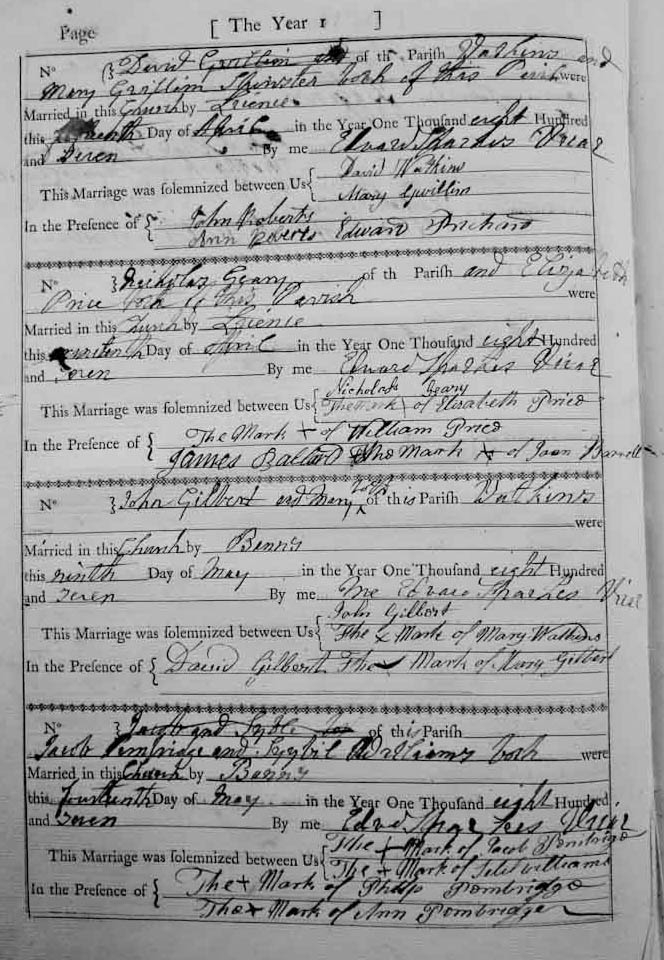 Page [ The Year 1 ]
No } David Gwillim and of th Parish Watkins and
Mary Gwillim Spinster both of this Parish were
Married in this Church by Licence
this Day of April in the Year One Thousand eight Hundred
and Seven By me Edward Sparkes Vicar
This Marriage was solemnized between Us { David Watkins
Mary Gwillim
In the Presence of { John Roberts
Ann Roberts Edward Prichard
No } Nicholas Geary of th Parish and Elizabeth
Price both of this Parish were
Married in this Church by Licence
this Day of April in the Year One Thousand eight Hundred
and Seven By me Edward Sparkes Vicar
This Marriage was solemnized between Us { Nicholas Geary
The Mark of Elizabeth Price
In the Presence of { The Mark + of William Price
James Ballard The Mark x of Joan Barnett
No } John Gilbert and Mary both of this Parish Watkins
were
Married in this Church by Banns
this ninth Day of May in the Year One Thousand eight Hundred
and Seven By me Edward Sparkes Vicar
This Marriage was solemnized between Us { John Gilbert
The x Mark of Mary Watkins
In the Presence of { David Gilbert The Mark of Mary Gilbert
No Jacob and of this Parish
Jacob Pembridge and Sybil Williams both were
Married in this Church by Banns
this fourteenth Day of May in the Year One Thousand eight Hundred
and Seven By me Edwd Sparkes Vicar
This Marriage was solemnized between Us { The + Mark of Jacob Pembridge
The + Mark of Williams
In the Presence of { The + Mark of Philip Pembridge
The + Mark of Ann Pembridge